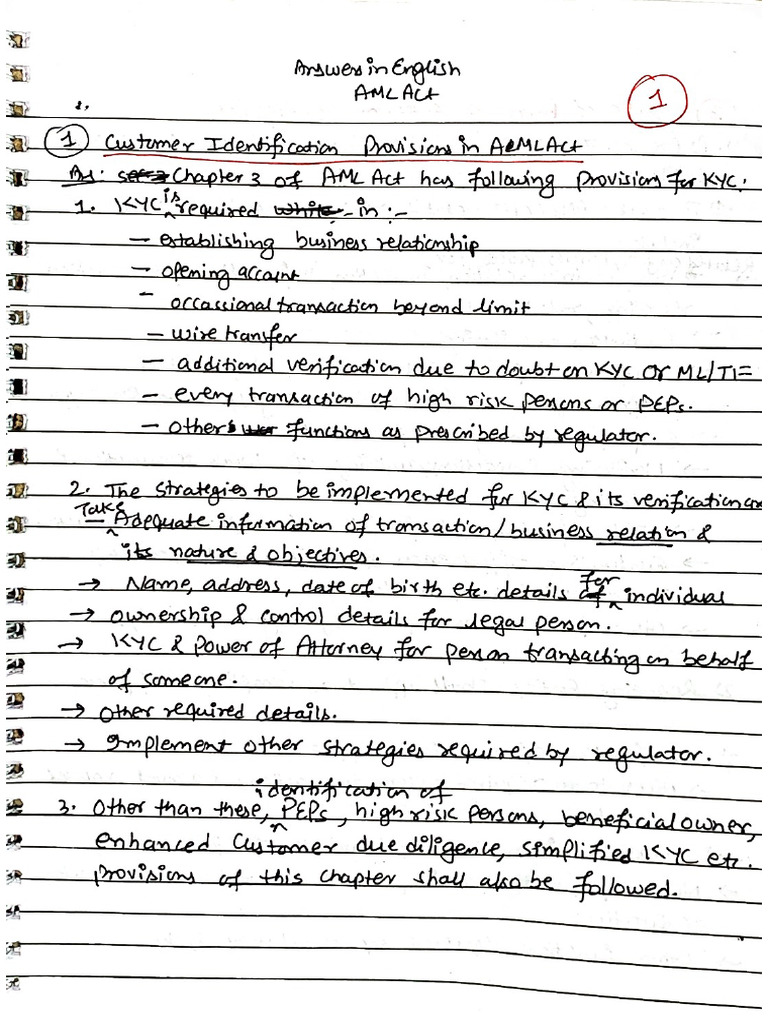 Answers in English
AML Act
1
1 Customer Identification Provisions in AMLAct
Ans: Chapter 3 of AML Act has following provisions for KYC:
1. KYC is required in :-
– establishing business relationship
– opening account
– occassional transaction beyond limit
– wire transfer
– additional verification due to doubt on KYC or ML/TF
– every transaction of high risk persons or PEPs.
– other functions as prescribed by regulator.
2. The strategies to be implemented for KYC & its verification are
– Take Adequate information of transaction/business relation &
its nature & objectives.
→ Name, address, date of birth etc. details for individual
→ ownership & control details for legal person.
→ KYC & Power of Attorney for person transacting on behalf
of someone.
→ Other required details.
→ Implement other strategies required by regulator.
3. Other than these, identification of PEPs, high risk persons, beneficial owner,
enhanced Customer due diligence, simplified KYC etc.
provisions of this chapter shall also be followed.